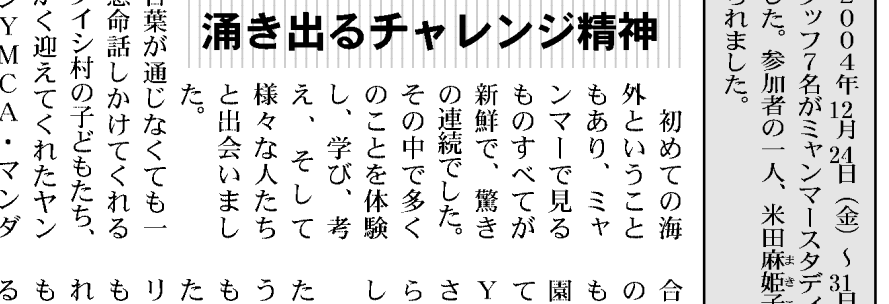 2004年12月24日（金）～31日
タッフ7名がミャンマースタデ
した。参加者の一人、米田麻姫子
まきこ
られました。
涌き出るチャレンジ精神
初めての海
外ということ
もあり、ミャ
ンマーで見る
ものすべてが
新鮮で、驚き
の連続でした。
その中で多く
のことを体験
し、学び、考
え、そして
様々な人たち
と出会いまし
た。
言葉が通じなくても一
懸命話しかけてくれる
イシ村の子どもたち、
かく迎えてくれたヤン
YMCA・マンダ
合
の
も
園
て
Y
さ
し
た
う
も
た
リ
も
れ
も
る